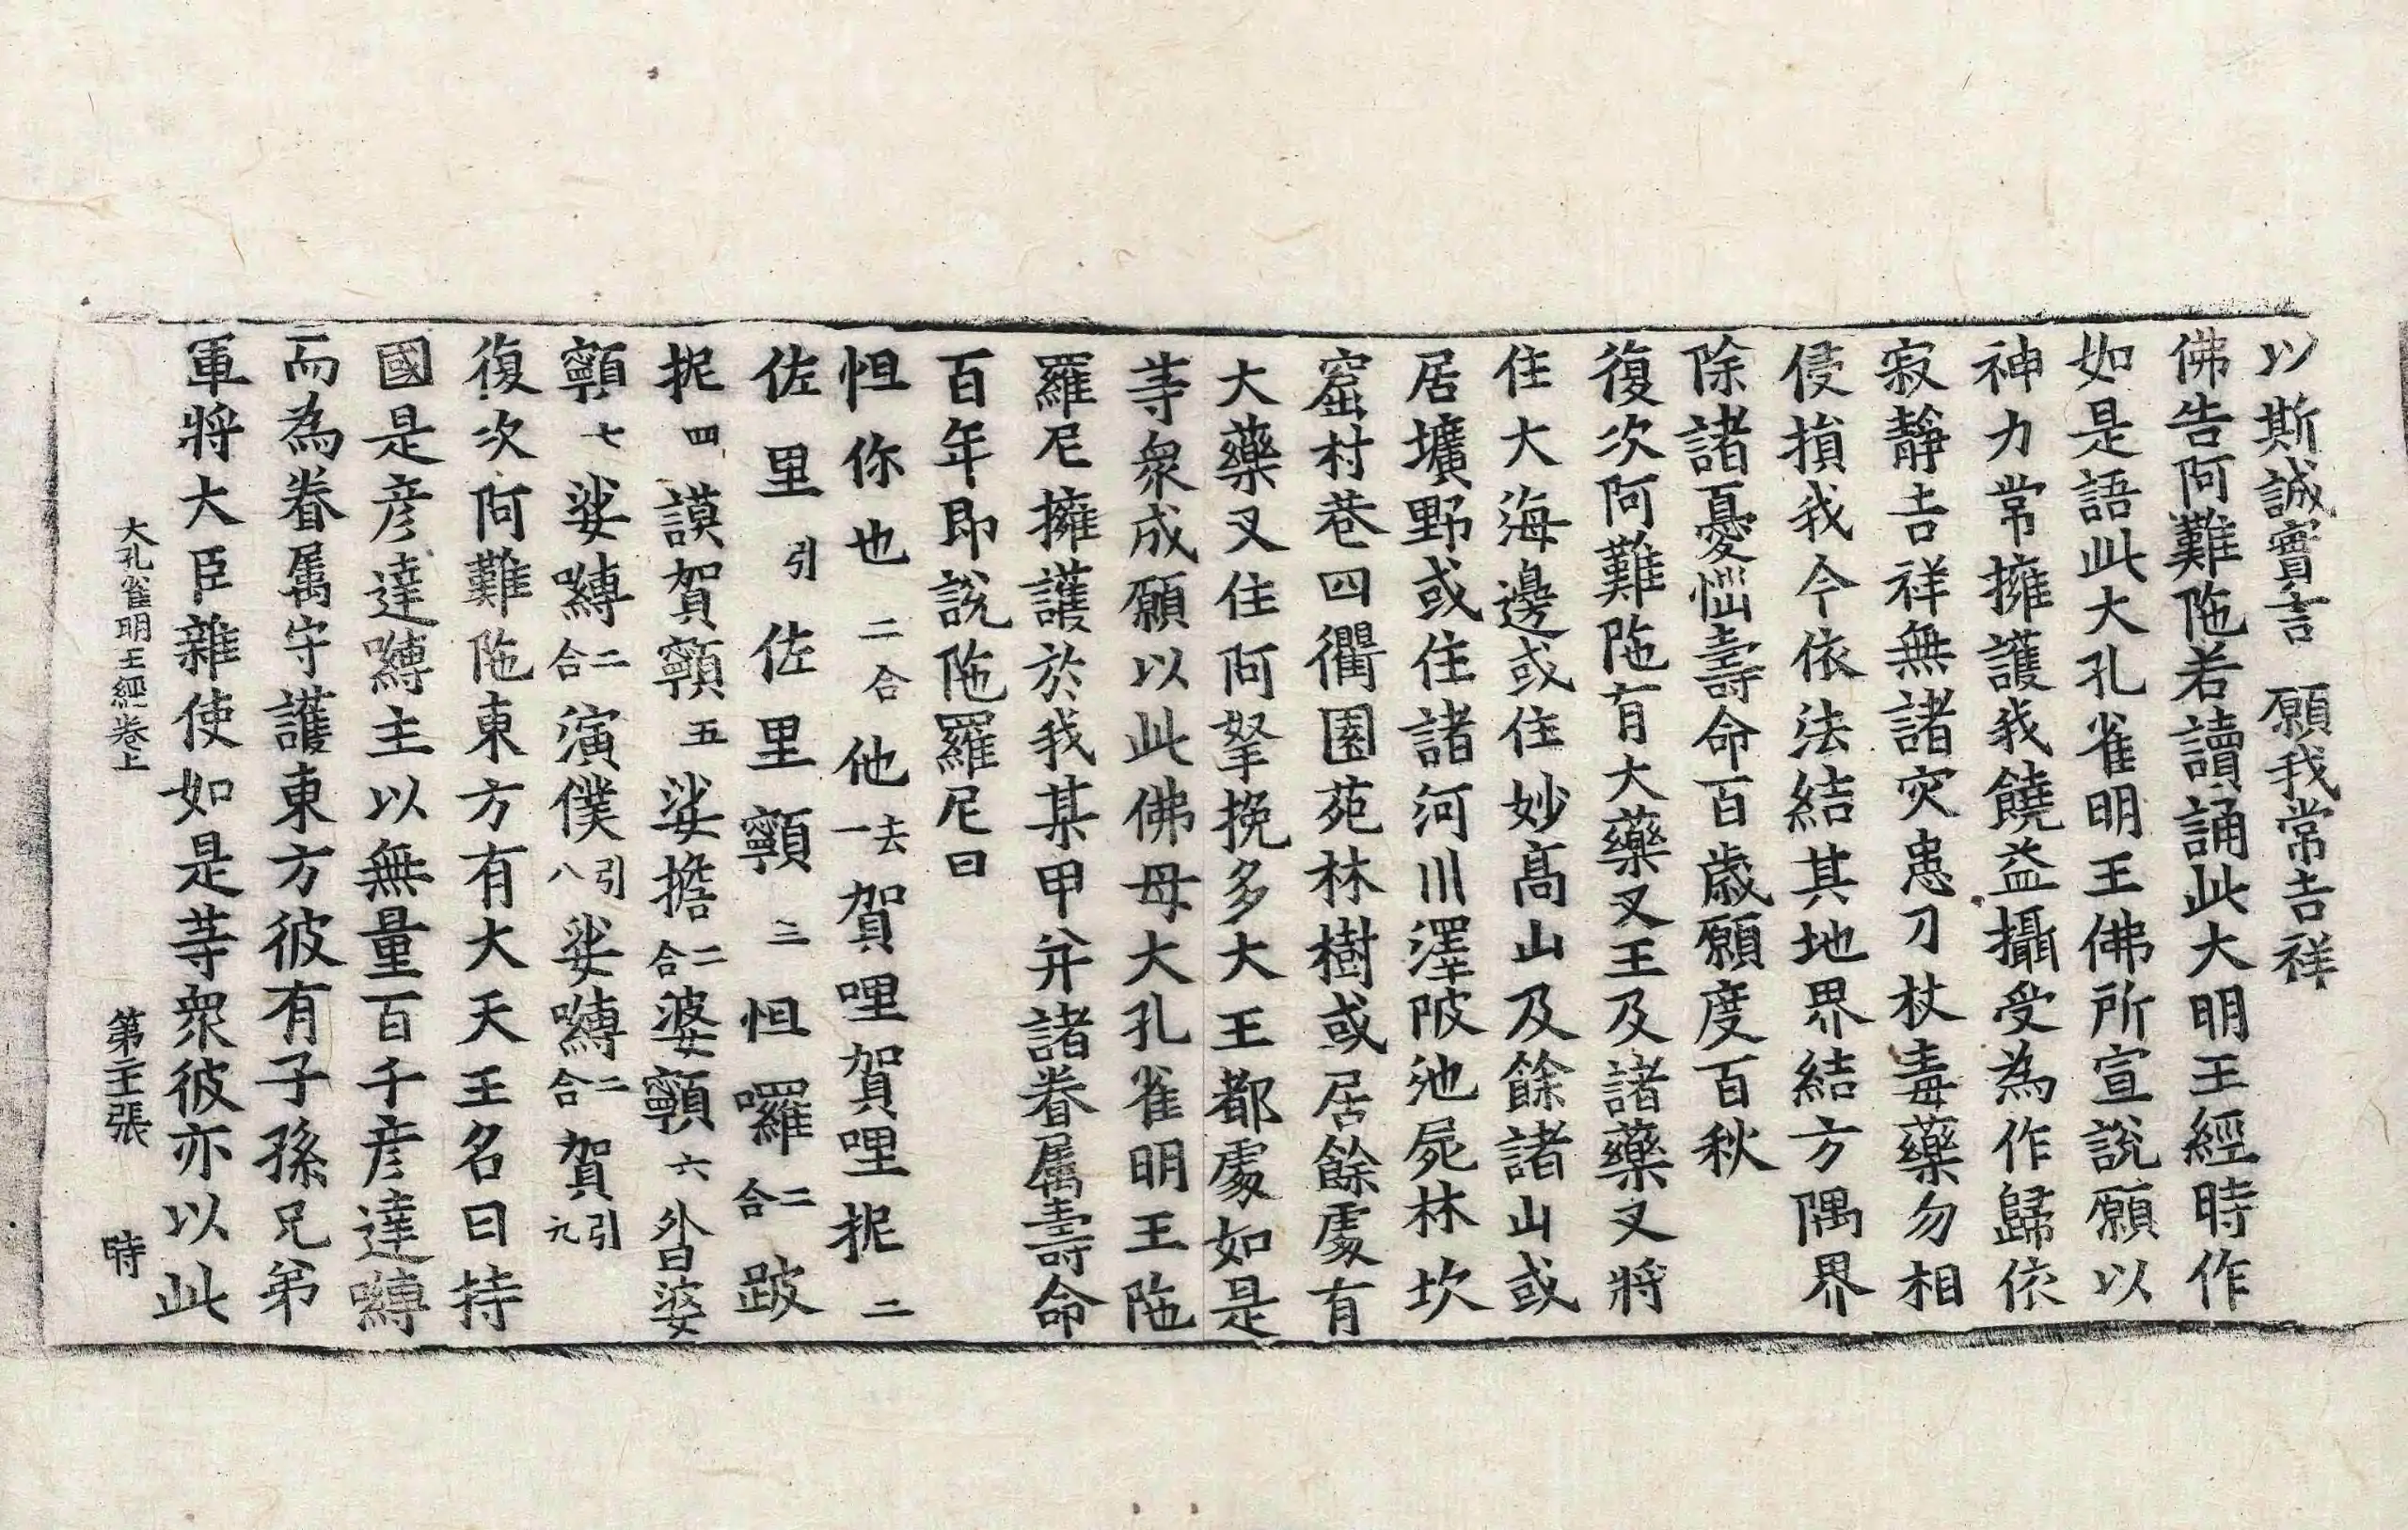 以斯誠實言　願我常吉祥
佛告阿難陁若讀誦此大明王經時作
如是語此大孔雀明王佛所宣說願以
神力常擁護我饒益攝受為作歸依
寂靜吉祥無諸灾患刀杖毒藥勿相
侵損我今依法結其地界結方隅界
除諸憂惱壽命百歳願度百秋
復次阿難陁有大藥叉王及諸藥叉將
住大海邊或住妙髙山及餘諸山或
居壙野或住諸河川澤陂池屍林坎
窟村巷四衢園苑林樹或居餘處有
大藥叉住阿拏挽多大王都處如是
等衆成願以此佛母大孔雀明王陁
羅尼擁護於我某甲并諸眷属壽命
百年即說陁羅尼曰
怛你也二合他去一賀哩賀哩抳二
佐里引佐里顐三怛囉二合跛
抳四謨賀顐五娑擔二合婆顐六昝婆
顐七娑嚩二合演僕引八娑嚩二合賀引九
復次阿難陁東方有大天王名曰持
國是彦達嚩主以無量百千彦達嚩
而為眷属守護東方彼有子孫兄弟
軍將大臣雜使如是等衆彼亦以此
大孔雀明王經卷上　第張　時